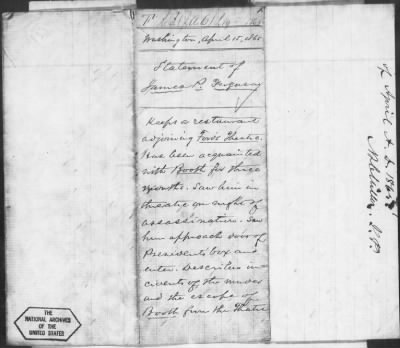 Washington, April 15, 1865
Statement of
James P. Ferguson
Keeps a restaurant
adjoining Fords Theatre.
Has been acquainted
with Booth for three
months. Saw him in
theatre on night of
assassination. Saw
him approach door of
Presidents box and
enter. Describes in-
cidents of the murder
and the escape of
Booth from the Theatre
of April A. D. 1865
THE
NATIONAL ARCHIVES
OF THE
UNITED STATES